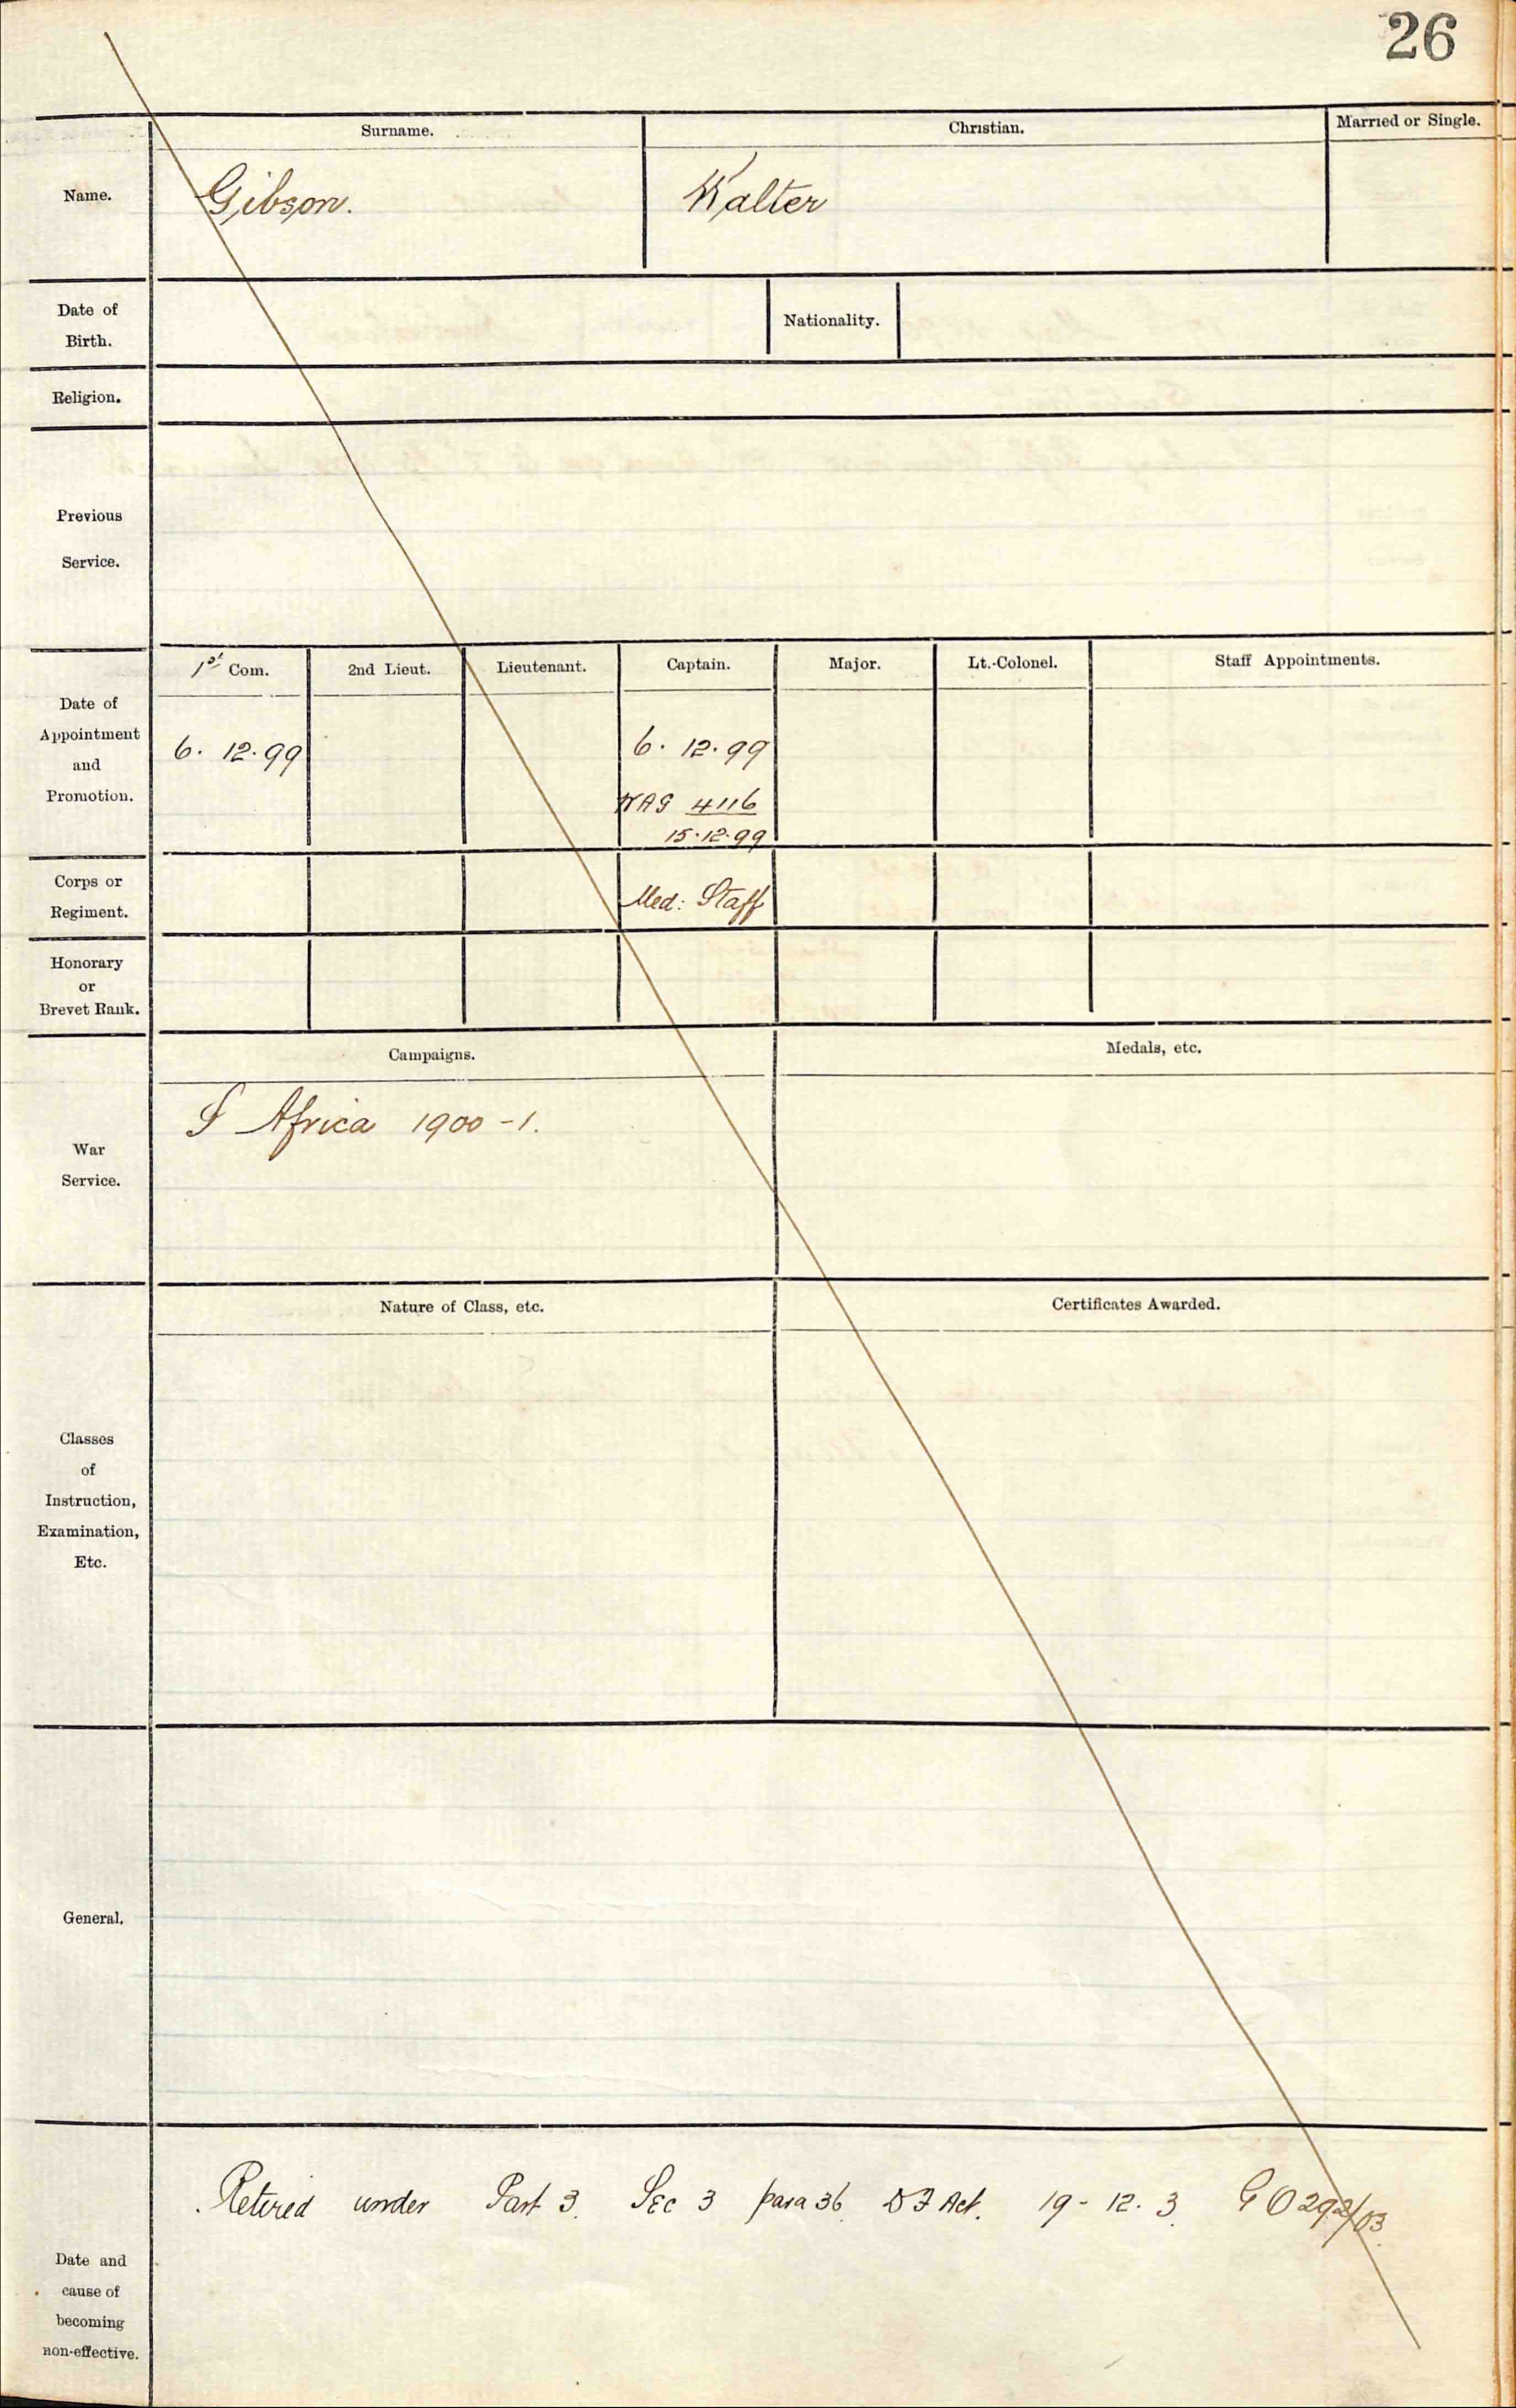 26
Surname. Christian. Married or Single.
Name. Gibson. Walter
Date of
Birth.
Nationality.
Religion.
Previous
Service.
1st Com. 2nd Lieut. Lieutenant. Captain. Major. Lt.-Colonel. Staff Appointments.
Date of
Appointment
and
Promotion.
6. 12. 99 6. 12. 99
WAG 4116
15.12.99
Corps or
Regiment.
Med: Staff
Honorary
or
Brevet Rank.
Campaigns. Medals, etc.
S Africa 1900-1.
War
Service.
Nature of Class, etc. Certificates Awarded.
Classes
of
Instruction,
Examination,
Etc.
General.
Retired under Part 3. Sec 3 para 36 DF Act. 19-12.3. GO 292/03.
Date and
cause of
becoming
non-effective.